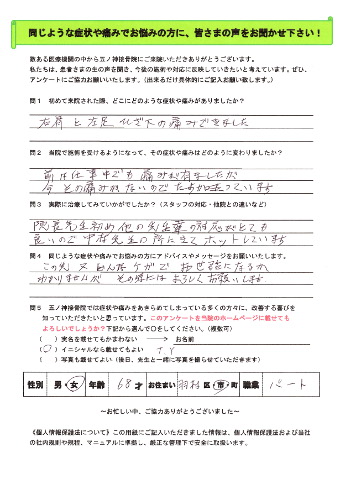 同じような症状や痛みでお悩みの方に、皆さまの声をお聞かせ下さい！
数ある医療機関の中から五ノ神接骨院にご来院いただきありがとうございます。
私たちは、患者さまの生の声を聞き、今後の施術や対応に反映していきたいと考えています。ぜひ、
アンケートにご協力お願いいたします。（出来るだけ具体的にご記入お願い致します。）
問１　初めて来院された際、どこにどのような症状や痛みがありましたか？
左肩と左足 ひざ下の痛みできました
問２　当院で施術を受けるようになって、その症状や痛みはどのように変わりましたか？
前は仕事中でも痛みが有ましたが
今 その痛みがないので たすかっています
問３　実際に治療してみていかがでしたか？（スタッフの対応・他院との違いなど）
院長先生初め他の先生輩の対応がとても
良いので 中村先生の所に来てホットしています
問４　同じような症状や痛みでお悩みの方にアドバイスやメッセージをお願いいたします。
この先 又どんなケガで お世話になるか
わかりませんが その時には よろしくお願いします
問５　五ノ神接骨院では症状や痛みをあきらめてしまっている多くの方々に、改善する喜びを
知っていただきたいと思っています。このアンケートを当院のホームページに載せても
よろしいでしょうか？下記から選んで○をしてください。（複数可）
（　）実名を載せてもかまわない　→　お名前
（○）イニシャルなら載せてもよい　T.Y
（　）写真も載せてよい（後日、先生と一緒に写真を撮らせていただきます）
性別　男・女　年齢　68才　お住まい　羽村　区・市・町　職業　パート
～お忙しい中、ご協力ありがとうございました～
《個人情報保護法について》この用紙にご記入いただきました情報は、個人情報保護法および当社
の社内規則や規程、マニュアルに準拠し、厳正な管理下で安全に取扱います。